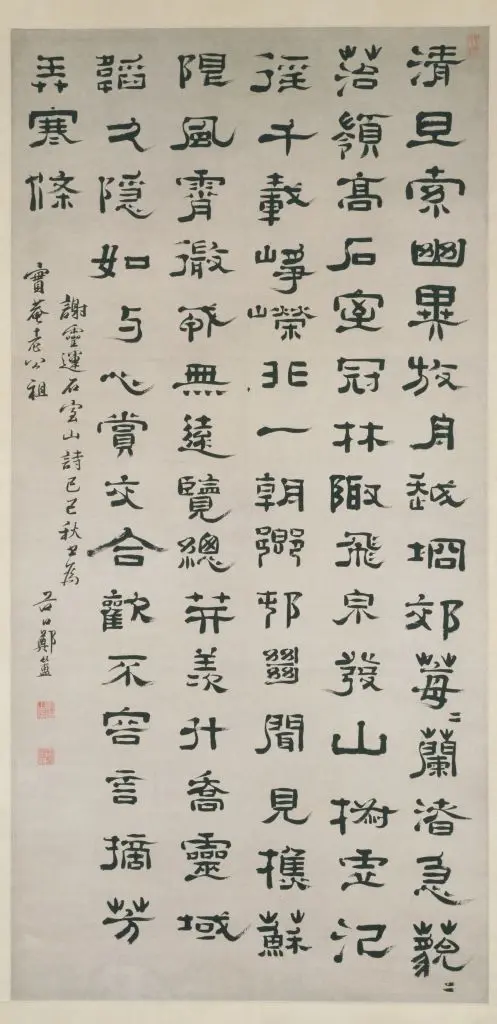 清旦索幽異放舟越坰郊莓〻蘭渚急藐〻
菭嶺高石室冠林陬飛泉發山椒虛氾
徑千載崢嶸非一朝鄉邨𢇍聞見樵蘇
限風霄微戎無遠覽總笄羨升喬靈域
韜久隱如与心賞交合歡不容言摘芳
弄寒條
謝靈運石室山詩己巳秋日為
實菴老公祖 谷口鄭簠